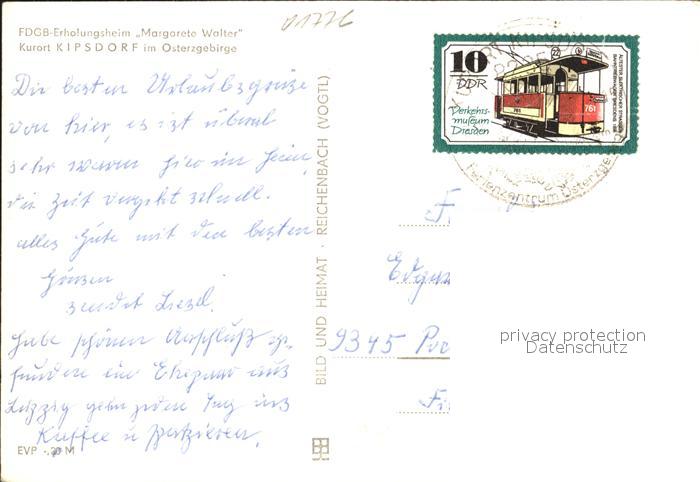 01776
FDGB-Erholungsheim „Margarete Walter"
Kurort KIPSDORF im Osterzgebirge
Die besten Urlaubsgrüße
von hier, es ist überal
sehr warm hier im Heim,
die Zeit vergeht schnell.
alles Gute mit den besten
Grüssen
sendet Liesel.
Habe schönen Anschluß ge-
funden ein Ehepaar aus
Leipzig gehn jeden Tag ins
Kaffee u spazieren.
EVP -,20 M
BILD UND HEIMAT · REICHENBACH (VOGTL)
10
DDR
Verkehrs-
museum
Dresden
22
761
Ferienzentrum Osterzge
Edgar
9345
privacy protection
Datenschutz